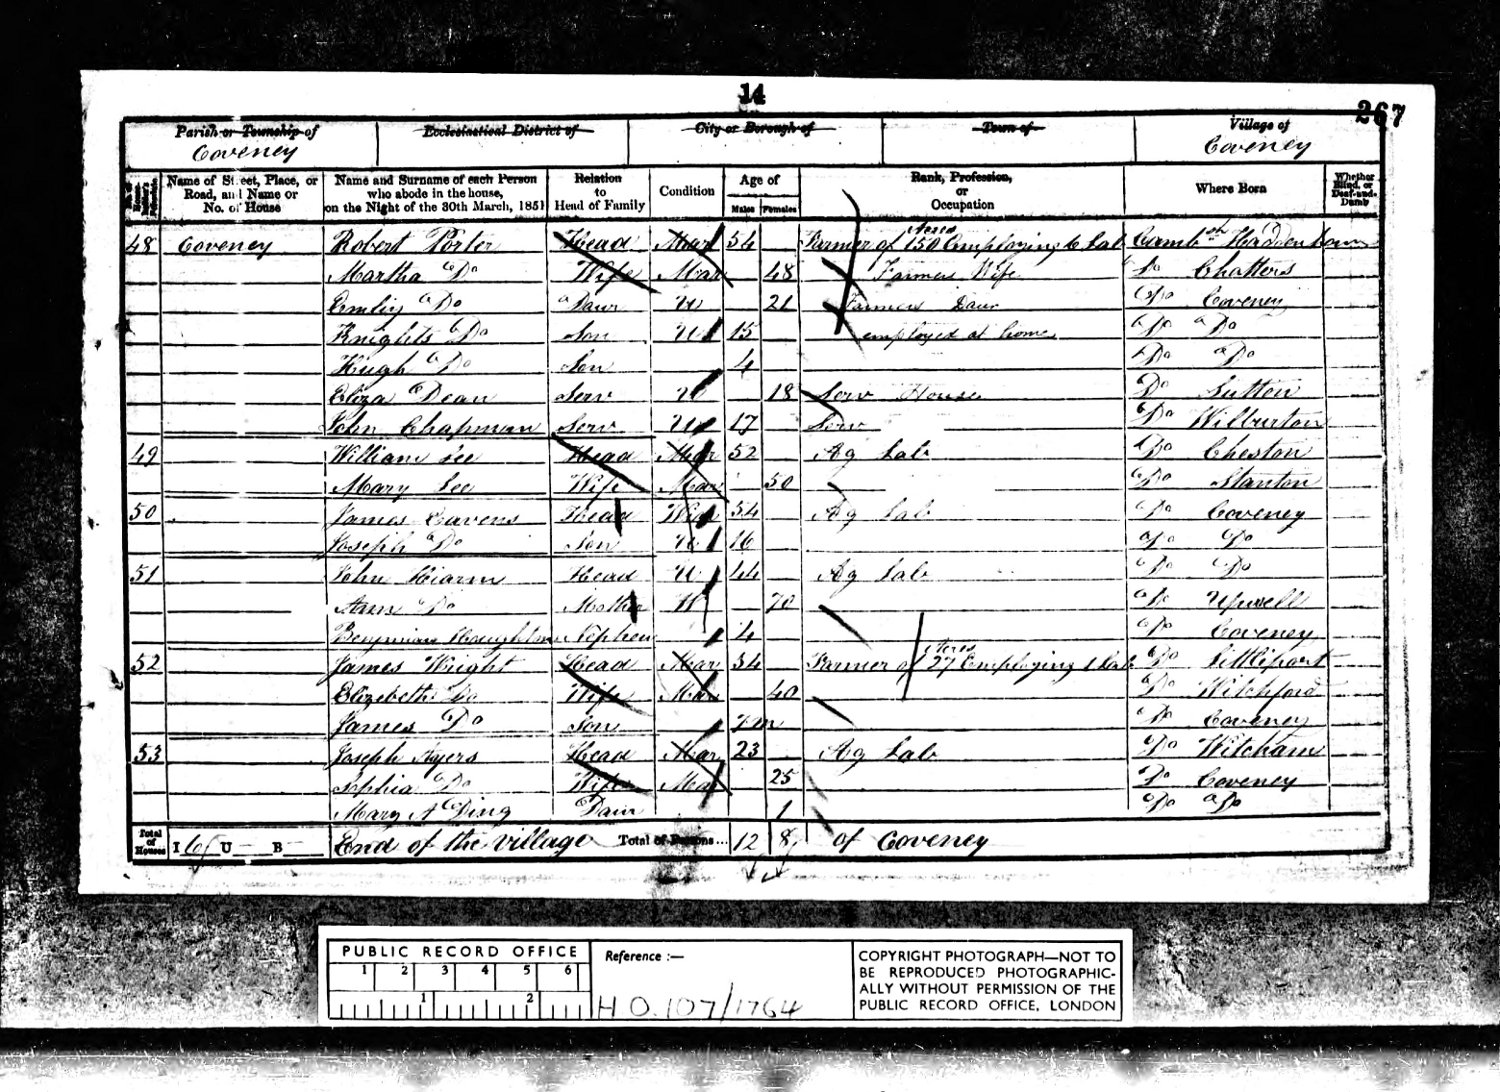 14
267
Parish or Township of Ecclesiastical District of City or Borough of Town of Village of
Coveney Coveney
Name of Street, Place, or Road, and Name or No. of House
Name and Surname of each Person who abode in the house, on the Night of the 30th March, 1851
Relation to Head of Family
Condition
Age of
Males Females
Rank, Profession, or Occupation
Where Born
Whether Blind, or Deaf-and-Dumb
48 Coveney Robert Porter Head Mar 54 Farmer of 150 Acres Employing 6 Lab Cambsh Haddenham
Martha Do Wife Mar 48 Farmers Wife Do Chatters
Emily Do Daur U 21 Farmers Daur Do Coveney
Knights Do Son U 15 employed at home Do Do
Hugh Do Son 4 Do Do
Eliza Dean Serv U 18 Serv House Do Sutton
John Chapman Serv U 17 Serv Do Wilburton
49 William Lee Head Mar 52 Ag Lab Do Cheston
Mary Lee Wife Mar 50 Do Stanton
50 James Head 54 Ag Lab Do Coveney
Joseph Do Son U 16 Do Do
51 John Head U 44 Ag Lab Do Do
Ann Do Mother W 70 Do Upwell
Benjamin Nephew 4 Do Coveney
52 James Wright Head Mar 34 Farmer of 27 Acres Employing 1 Lab Do Littleport
Elizabeth Do Wife Mar 40 Do Witchford
James Do Son 7m Do Coveney
53 Joseph Ayers Head Mar 23 Ag Lab Do Witcham
Sophia Do Wife Mar 25 Do Coveney
Mary A Ding Daur 1 Do Do
Total of Houses I 6 U B End of the village Total of Persons... 12 8 of Coveney
PUBLIC RECORD OFFICE
1 2 3 4 5 6
1 2
Reference :—
H.O.107/1764
COPYRIGHT PHOTOGRAPH—NOT TO
BE REPRODUCED PHOTOGRAPHIC-
ALLY WITHOUT PERMISSION OF THE
PUBLIC RECORD OFFICE, LONDON